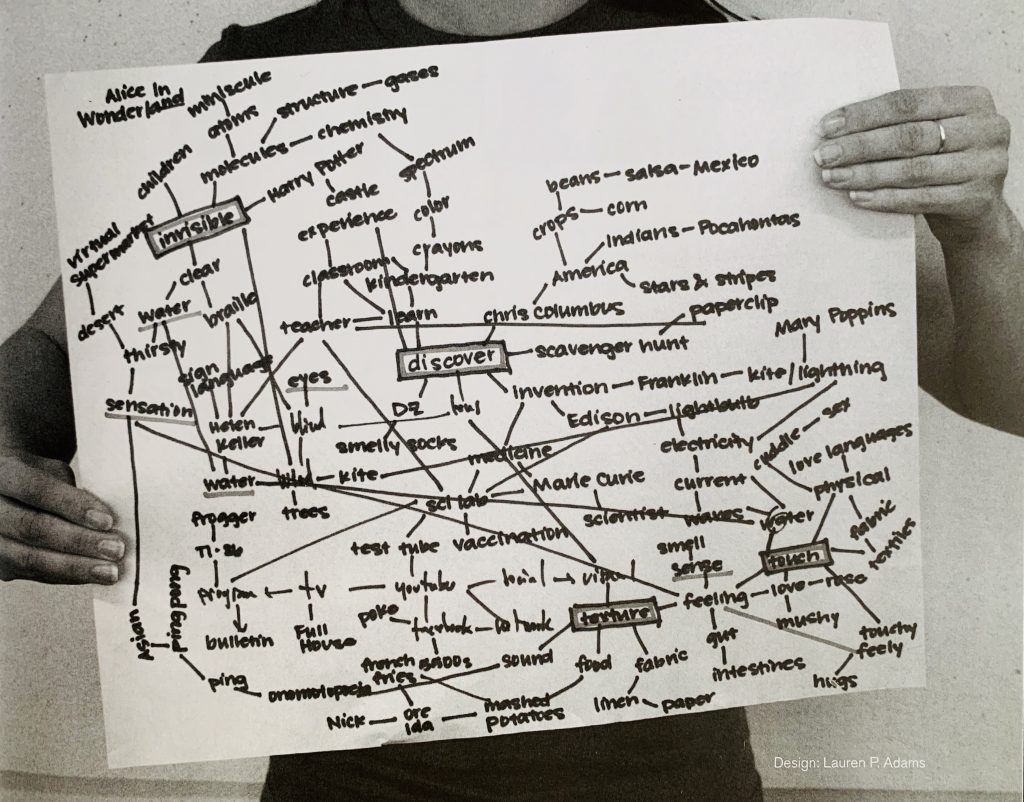 Alice in
Wonderland
miniscule
atoms
structure
gases
molecules
chemistry
children
Harry Potter
castle
spectrum
invisible
experience
color
crayons
beans
salsa
Mexico
crops
corn
Indians
Pocahontas
America
stars & stripes
virtual
supermarket
clear
classroom
kindergarten
water
braille
desert
teacher
learn
chris columbus
paperclip
thirsty
discover
scavenger hunt
Mary Poppins
sign
language
eyes
invention
Franklin
kite/lightning
sensation
Edison
lightbulb
Helen
Keller
blind
smelly socks
electricity
cuddle
sex
medicine
love languages
water
kite
sci lab
Marie Curie
current
physical
Frogger
trees
scientist
water
fabric
textiles
TI-86
test tube
vaccination
smell
sense
touch
program
tv
youtube
texture
feeling
love
rose
bulletin
Full
House
poke
facebook
gut
mushy
touchy
feely
noisy
french
fries
sound
food
fabric
intestines
hugs
ping
onomotopoeia
linen
paper
Nick
ore
ida
mashed
potatoes
Design: Lauren P. Adams